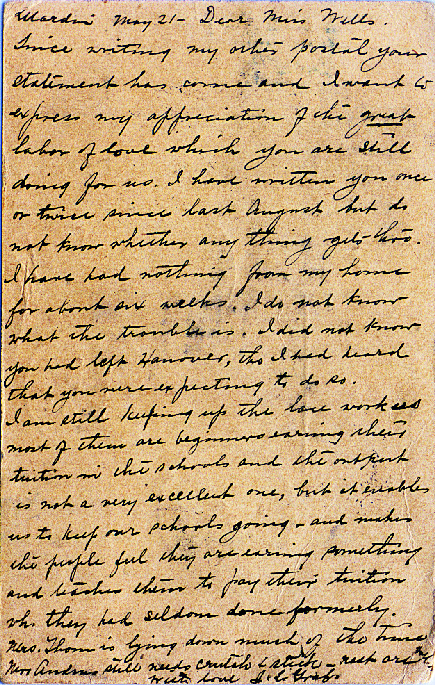 Mardin May 21 - Dear Miss Wells.
Since writing my other postal your
statement has come and I want to
express my appreciation of the great
labor of love which you are still
doing for us. I have written you once
or twice since last August but do
not know whether any thing gets thro.
I have had nothing from my home
for about six weeks. I do not know
what the trouble is. I did not know
you had left Hanover, tho I had heard
that you were expecting to do so.
I am still keeping up the lace work as
most of them are beginners earning their
tuition in the schools and the output
is not a very excellent one, but it enables
us to keep our schools going - and makes
the people feel they are earning something
and teaches them to pay their tuition
wh. they had seldom done formerly.
Mrs. Thom is lying down much of the time
Mrs Andrus still needs crutch & stick - rest are
With love